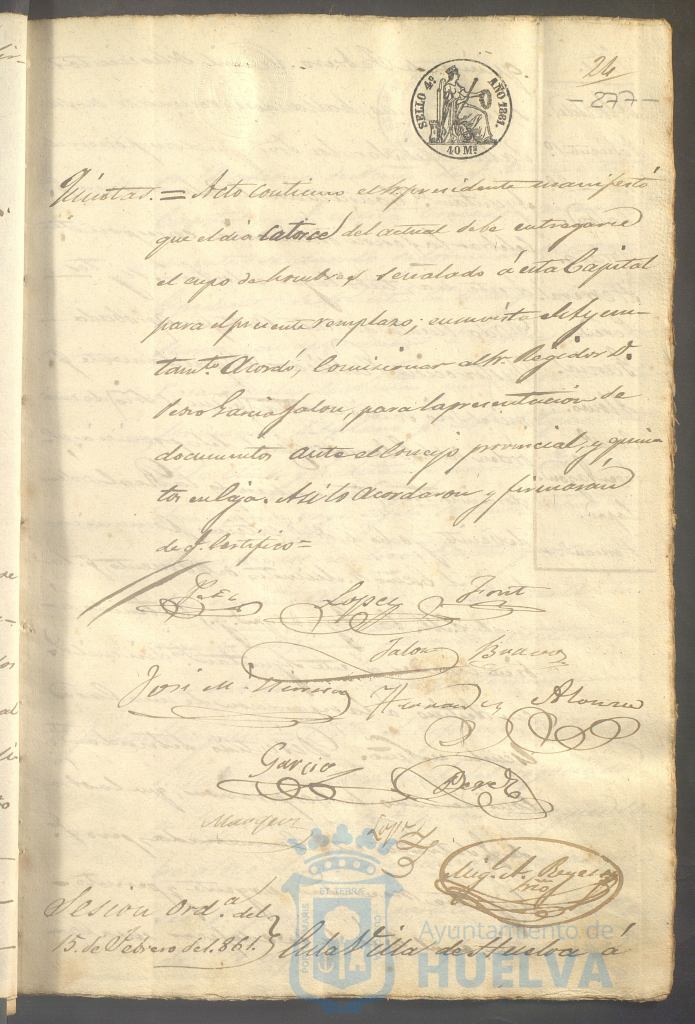 24
- 277 -
SELLO 4º AÑO 1861.
40 Ms
Quintas. = Acto continuo el Sr. presidente manifestó
que el dia catorce del actual debe entregarse
el cupo de hombres señalado á esta Capital
para el presente remplazo; en su vista el Ayun-
tamto. Acordó, comisionar al Sr. Regidor D.
Pedro Garcia Jalon, para la presentacion de
documentos ante el Consejo provincial, y quin
tos en Caja. Asi lo acordaron y firmarán
de q. Certifico =
Lopez Font
Jalon
José Ma. Hernandez Alonso
Garcia Perez
Lopez
Mig. A.
Sesion Orda. del
15. de Febrero de 1.861. En la Villa de Huelva á
Ayuntamiento de
HUELVA